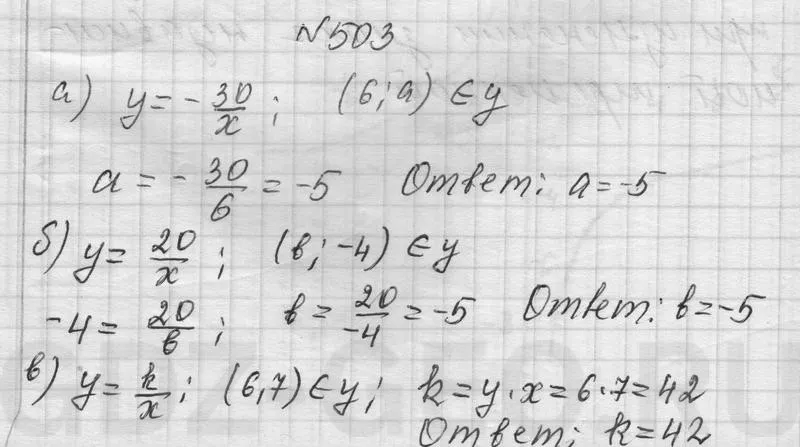 №503
а) y = -30/x; (6; a) ∈ y
a = -30/6 = -5 Ответ: a = -5
б) y = 20/x; (в; -4) ∈ y
-4 = 20/в; в = 20/-4 = -5 Ответ: в = -5
в) y = k/x; (6,7) ∈ y; k = y·x = 6·7 = 42
Ответ: k = 42